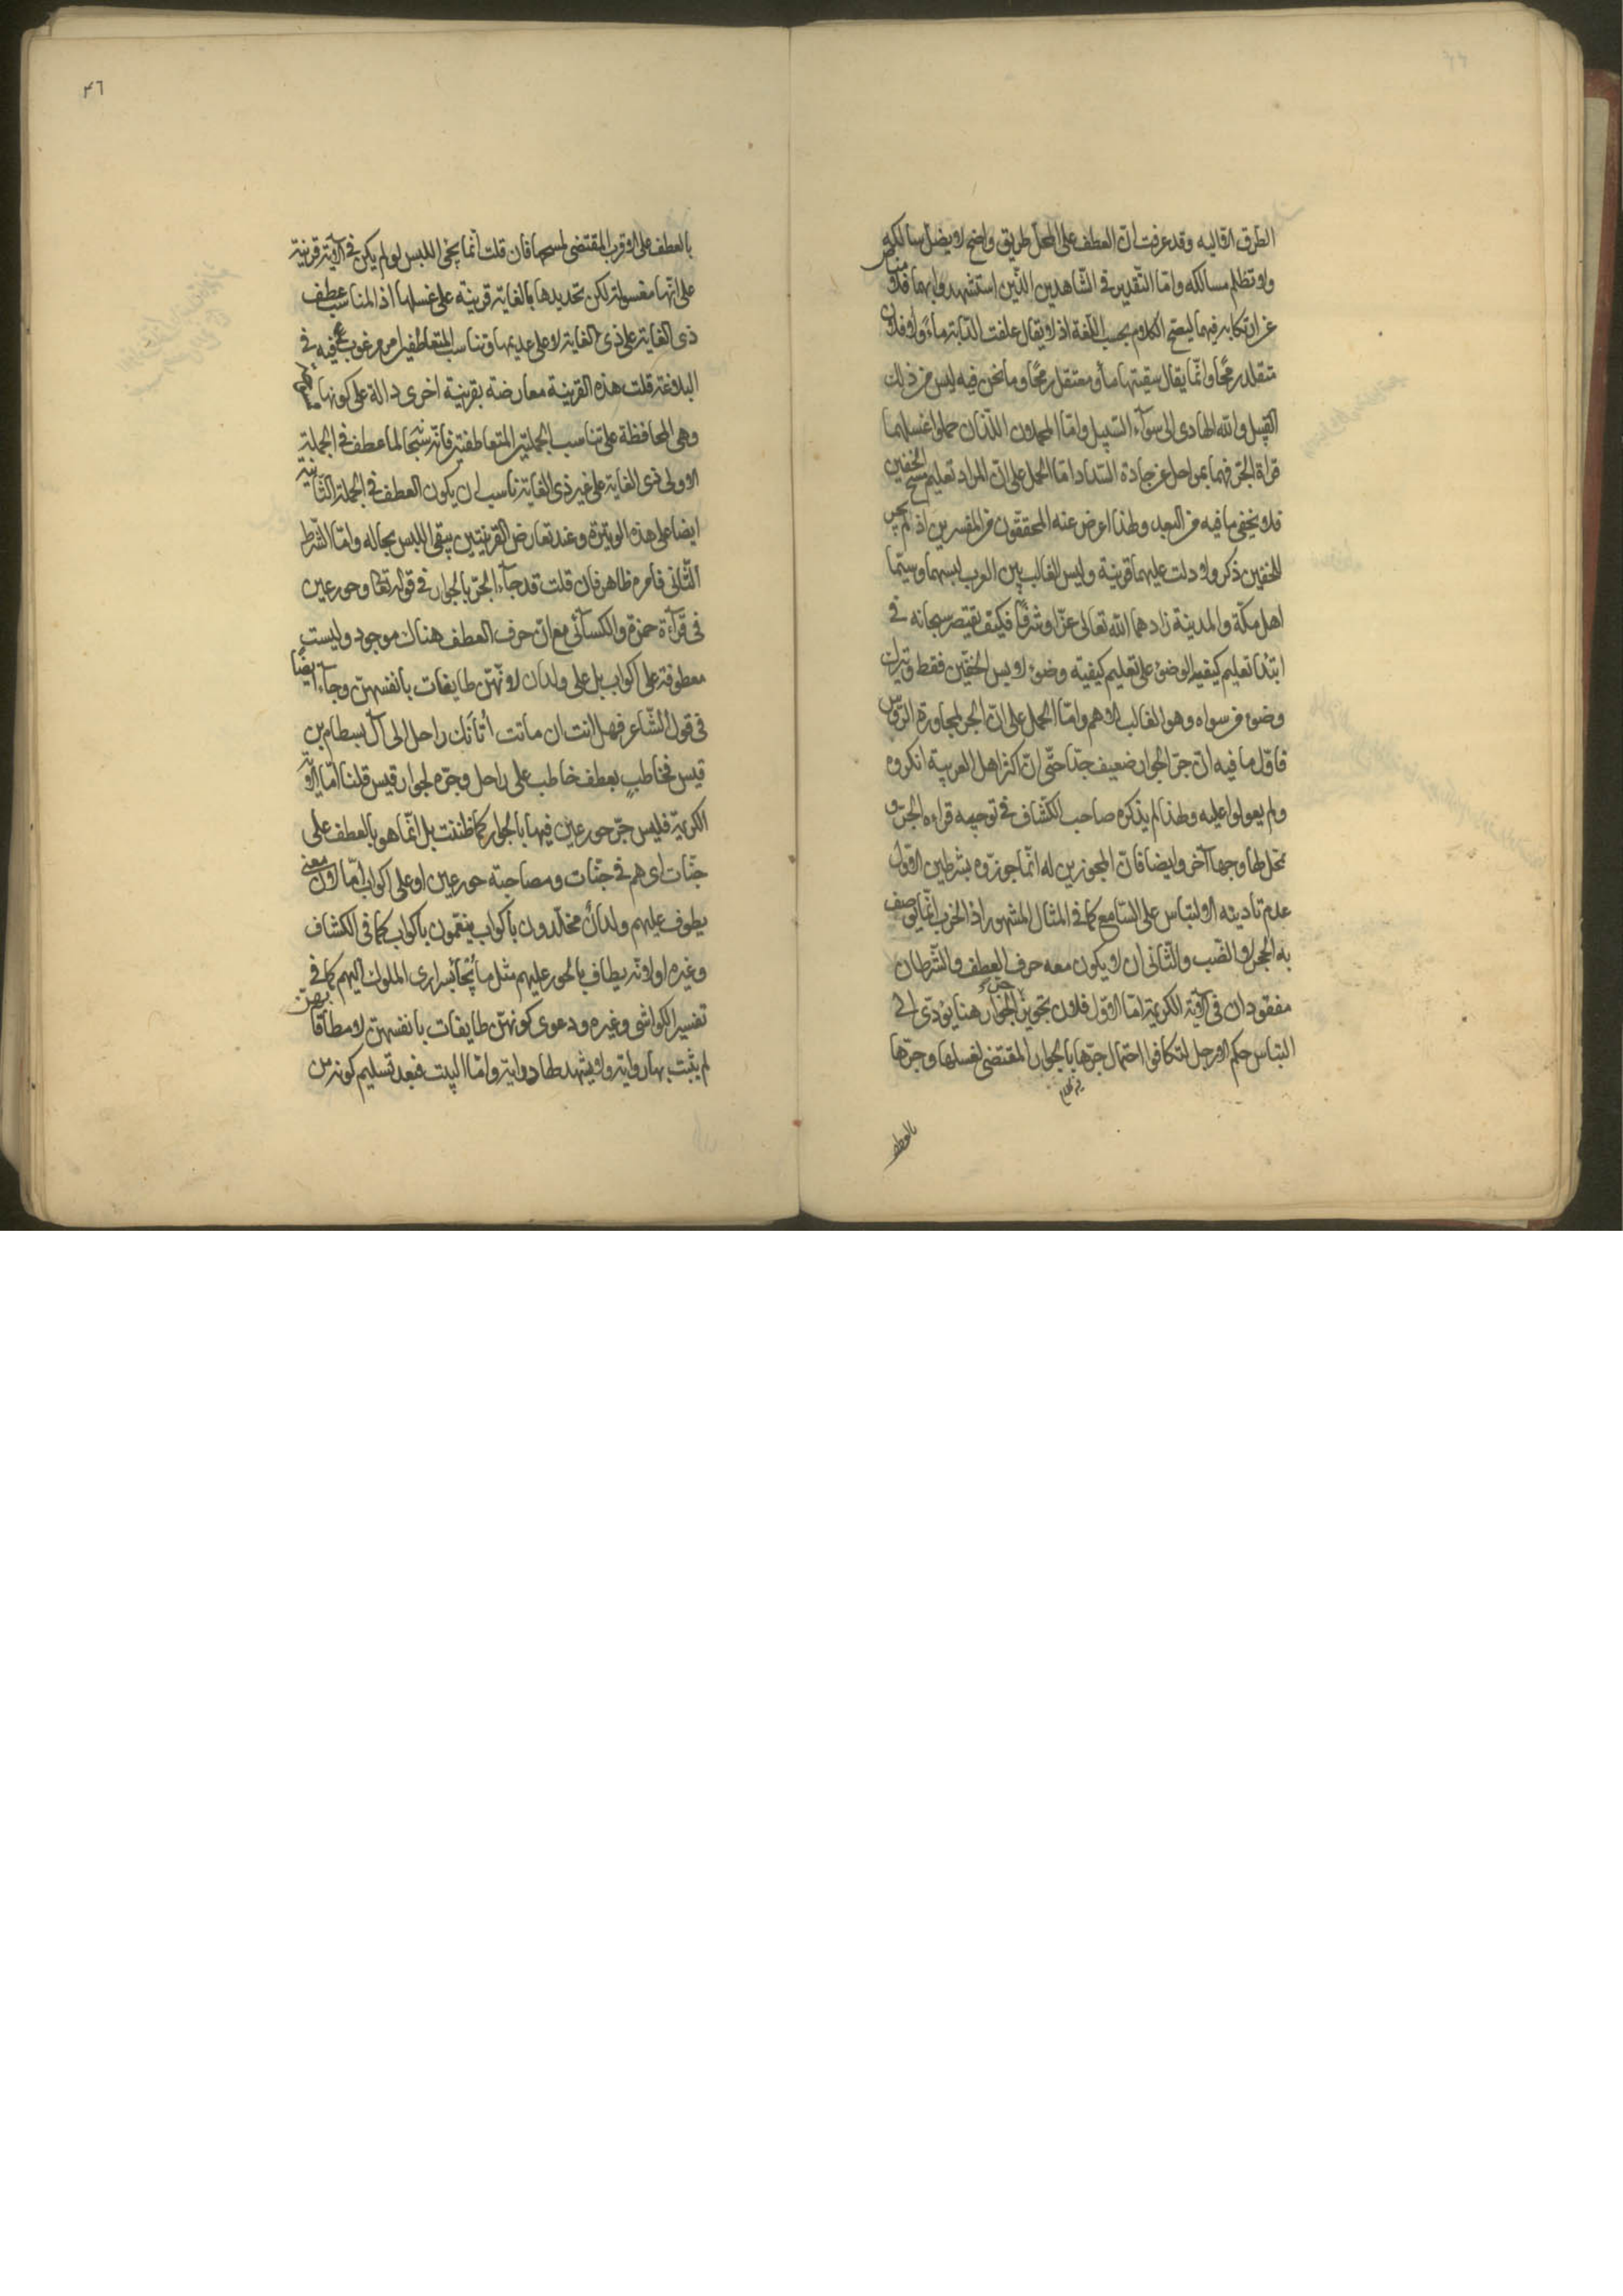 الطرق القاليه وقد عرفت ان العطف على المحل طريق واضح لا يضل سالكه
ولا تظلم مسالكه واما التقدير فى الشاهدين الذين استشهدوا بهما فلا مناص
عن ارتكابه فيهما ليصح الكلام بحسب اللغة اذ لا يقال علفت الدابة ماء ولا فلان
متقلد رمحا وانما يقال سقيتها ماء ومعتقل رمحا وما نحن فيه ليس من ذلك
القبيل والله الهادى الى سواء السبيل واما المحملان اللذان حملوا عليهما
قراة الجر فهما بمراحل عن جادة السداد اما الحمل على ان المراد تعليم مسح الخفين
فلا يخفى ما فيه من البعد ولهذا اعرض عنه المحققون من المفسرين اذ لم يجر
للخفين ذكر ولا دلت عليهما قرينة وليس الغالب بين العرب لبسهما وسيما
اهل مكة والمدينة زادهما الله تعالى عزا وشرفا فكيف يقتصر سبحانه فى
ابتداء تعليم كيفية الوضوء على تعليم كيفية وضوء لابس الخفين فقط ويترك
وضوء من سواه وهو الغالب الاهم واما الحمل على ان الجر لمجاورة الرؤس
فاول ما فيه ان جر الجوار ضعيف جدا حتى ان اكثر اهل العربية انكروه
ولم يعولوا عليه ولهذا لم يذكره صاحب الكشاف فى توجيه قراءة الجر و
تمحل لها وجها آخر وايضا فان المجوزين له انما جوزوه بشرطين الاول
عدم تاديته الالتباس على السامع كما فى المثال المشهور اذ الخرب انما يوصف
به الجحر لا الضب والثانى ان لا يكون معه حرف العطف والشرطان
مفقودان فى الآية الكريمة اما الاول فلان تجويز جر الجوار هنا يؤدى الى
التباس حكم الارجل لتكافوا احتمال جرها بالجوار المقتضى لغسلها وجرها
بالعطف
٤٦
بالعطف على الاقرب المقتضى لمسحها فان قلت انما يجئ اللبس لو لم يكن فى الآية قرينة
على انها مغسولة لكن تحديدها بالغاية قرينة على غسلها اذ المناسب عطف
ذى الغاية على ذى الغاية لا على عديمها وتناسب المتعاطفين امر مرغوب فيه فى
البلاغة قلت هذه القرينة معارضة بقرينة اخرى دالة على كونها
وهى المحافظة على تناسب الجملتين المتعاطفتين فانه سبحانه لما عطف فى الجملة
الاولى ذى الغاية على غير ذى الغاية ناسب ان يكون العطف فى الجملة الثانية
ايضا على هذه الوتيرة وعند تعارض القرينتين يبقى اللبس بحاله واما الشرط
الثانى فامره ظاهر فان قلت قد جاء الجر بالجوار فى قوله تعالى وحور عين
فى قرآءة حمزة والكسآئى مع ان حرف العطف هناك موجود وليست
معطوفة على اكواب بل على ولدان لانهن طايفات بانفسهن وجاء ايضا
فى قول الشاعر فهل انت ان ماتت أتانك راحل الى آل بسطام بن
قيس فخاطبٍ بعطف خاطب على راحل وجره لجوار قيس قلنا اما الآية
الكريمة فليس جر حور عين فيها بالجوار كما ظننت بل انما هو بالعطف على
جنات اى هم فى جنات ومصاحبة حور عين او على اكواب اما لان معنى
يطوف عليهم ولدان مخلدون باكواب ينعمون باكواب كما فى الكشاف
وغيره او لانه يطاف بالحور عليهم مثل ما يُجآء بسرارى الملوك اليهم كما فى
تفسير الكواشى وغيره ودعوى كونهن طايفات بانفسهن لا مطافا بهن
لم يثبت بها رواية ولا يشهد لها دراية واما البيت فبعد تسليم كونه من